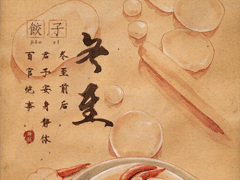 餃子
jiǎo zi
冬至
冬至前后
君子安身静体
百官绝事